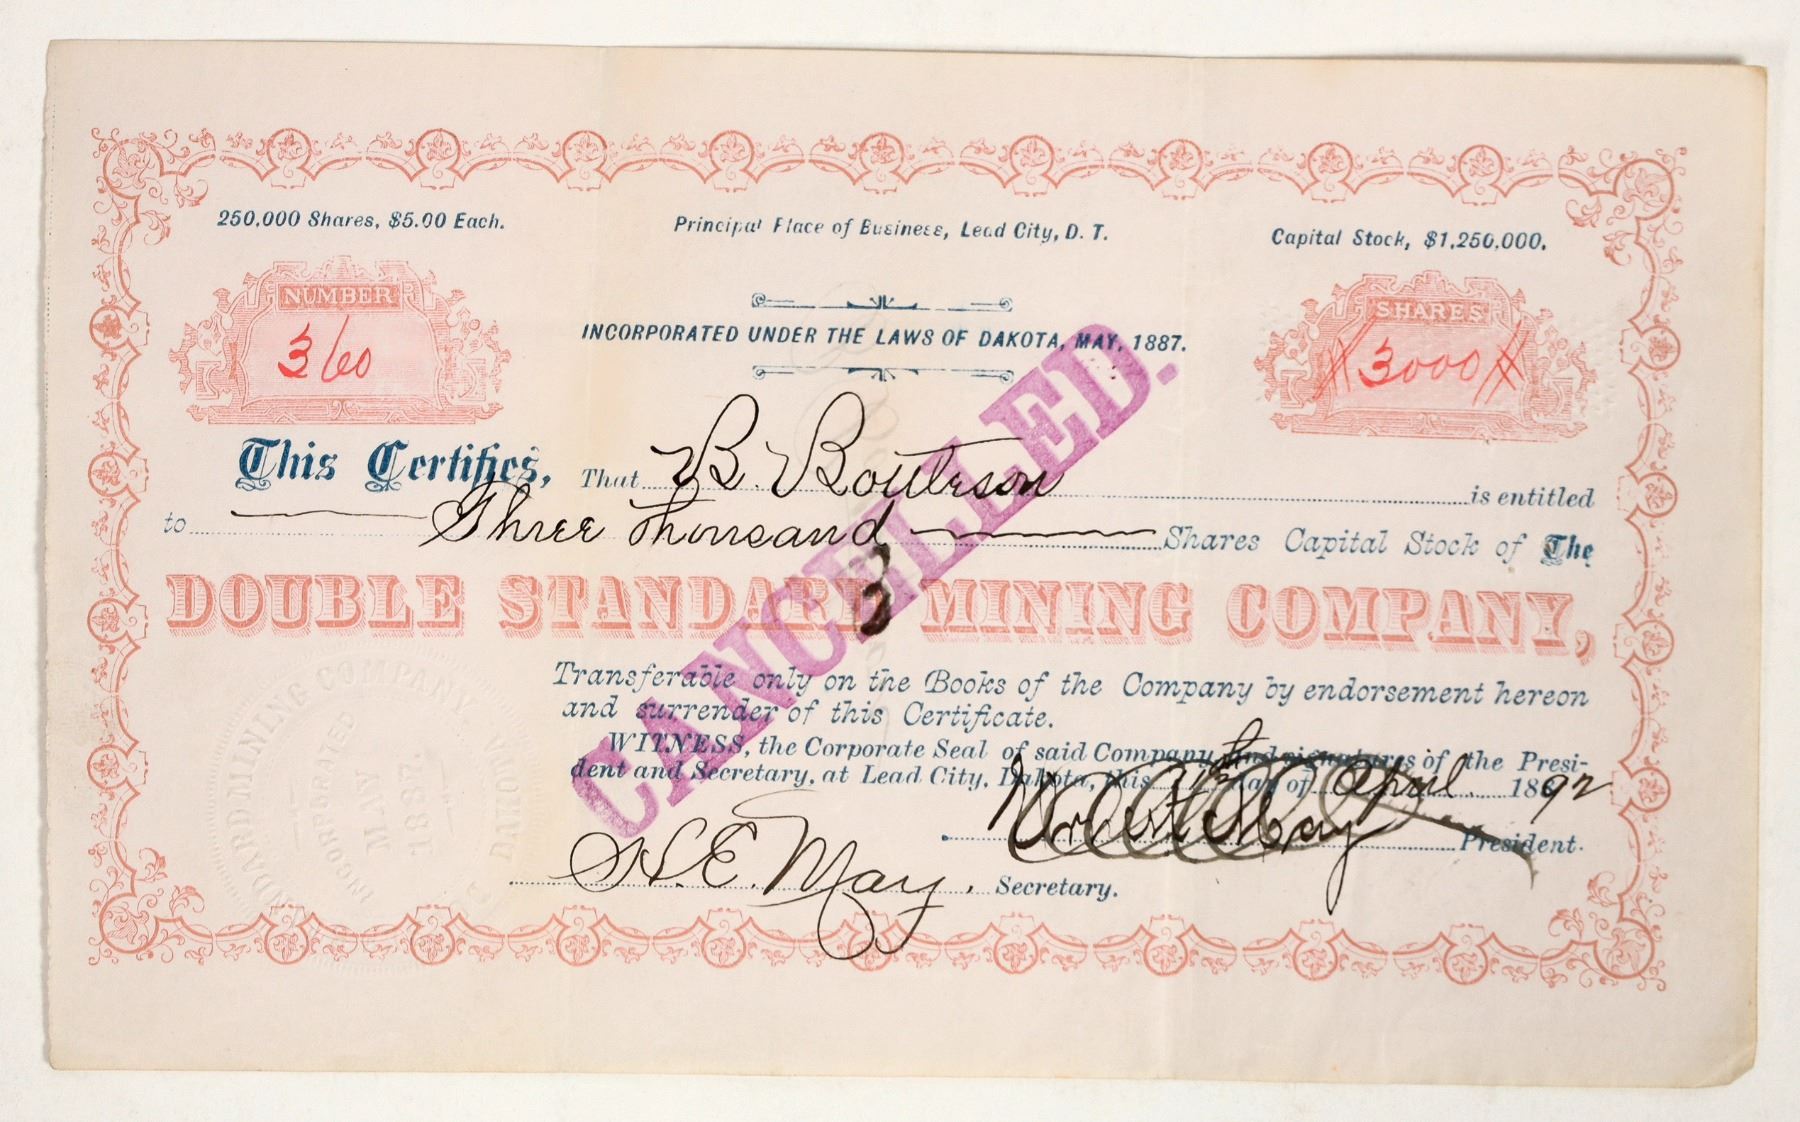 250,000 Shares, $5.00 Each.
Principal Place of Business, Lead City, D. T.
Capital Stock, $1,250,000.
NUMBER
360
INCORPORATED UNDER THE LAWS OF DAKOTA, MAY, 1887.
SHARES
#3000#
This Certifies, That B. Boutteson is entitled
to Three Thousand Shares Capital Stock of The
DOUBLE STANDARD MINING COMPANY,
CANCELLED.
3
Transferable only on the Books of the Company by endorsement hereon
and surrender of this Certificate.
WITNESS, the Corporate Seal of said Company and signatures of the Presi-
dent and Secretary, at Lead City, Dakota, this day of April 1892
May President.
H. E. May. Secretary.
DARD MINING COMPANY
INCORPORATED
MAY
1887.
DAKOTA